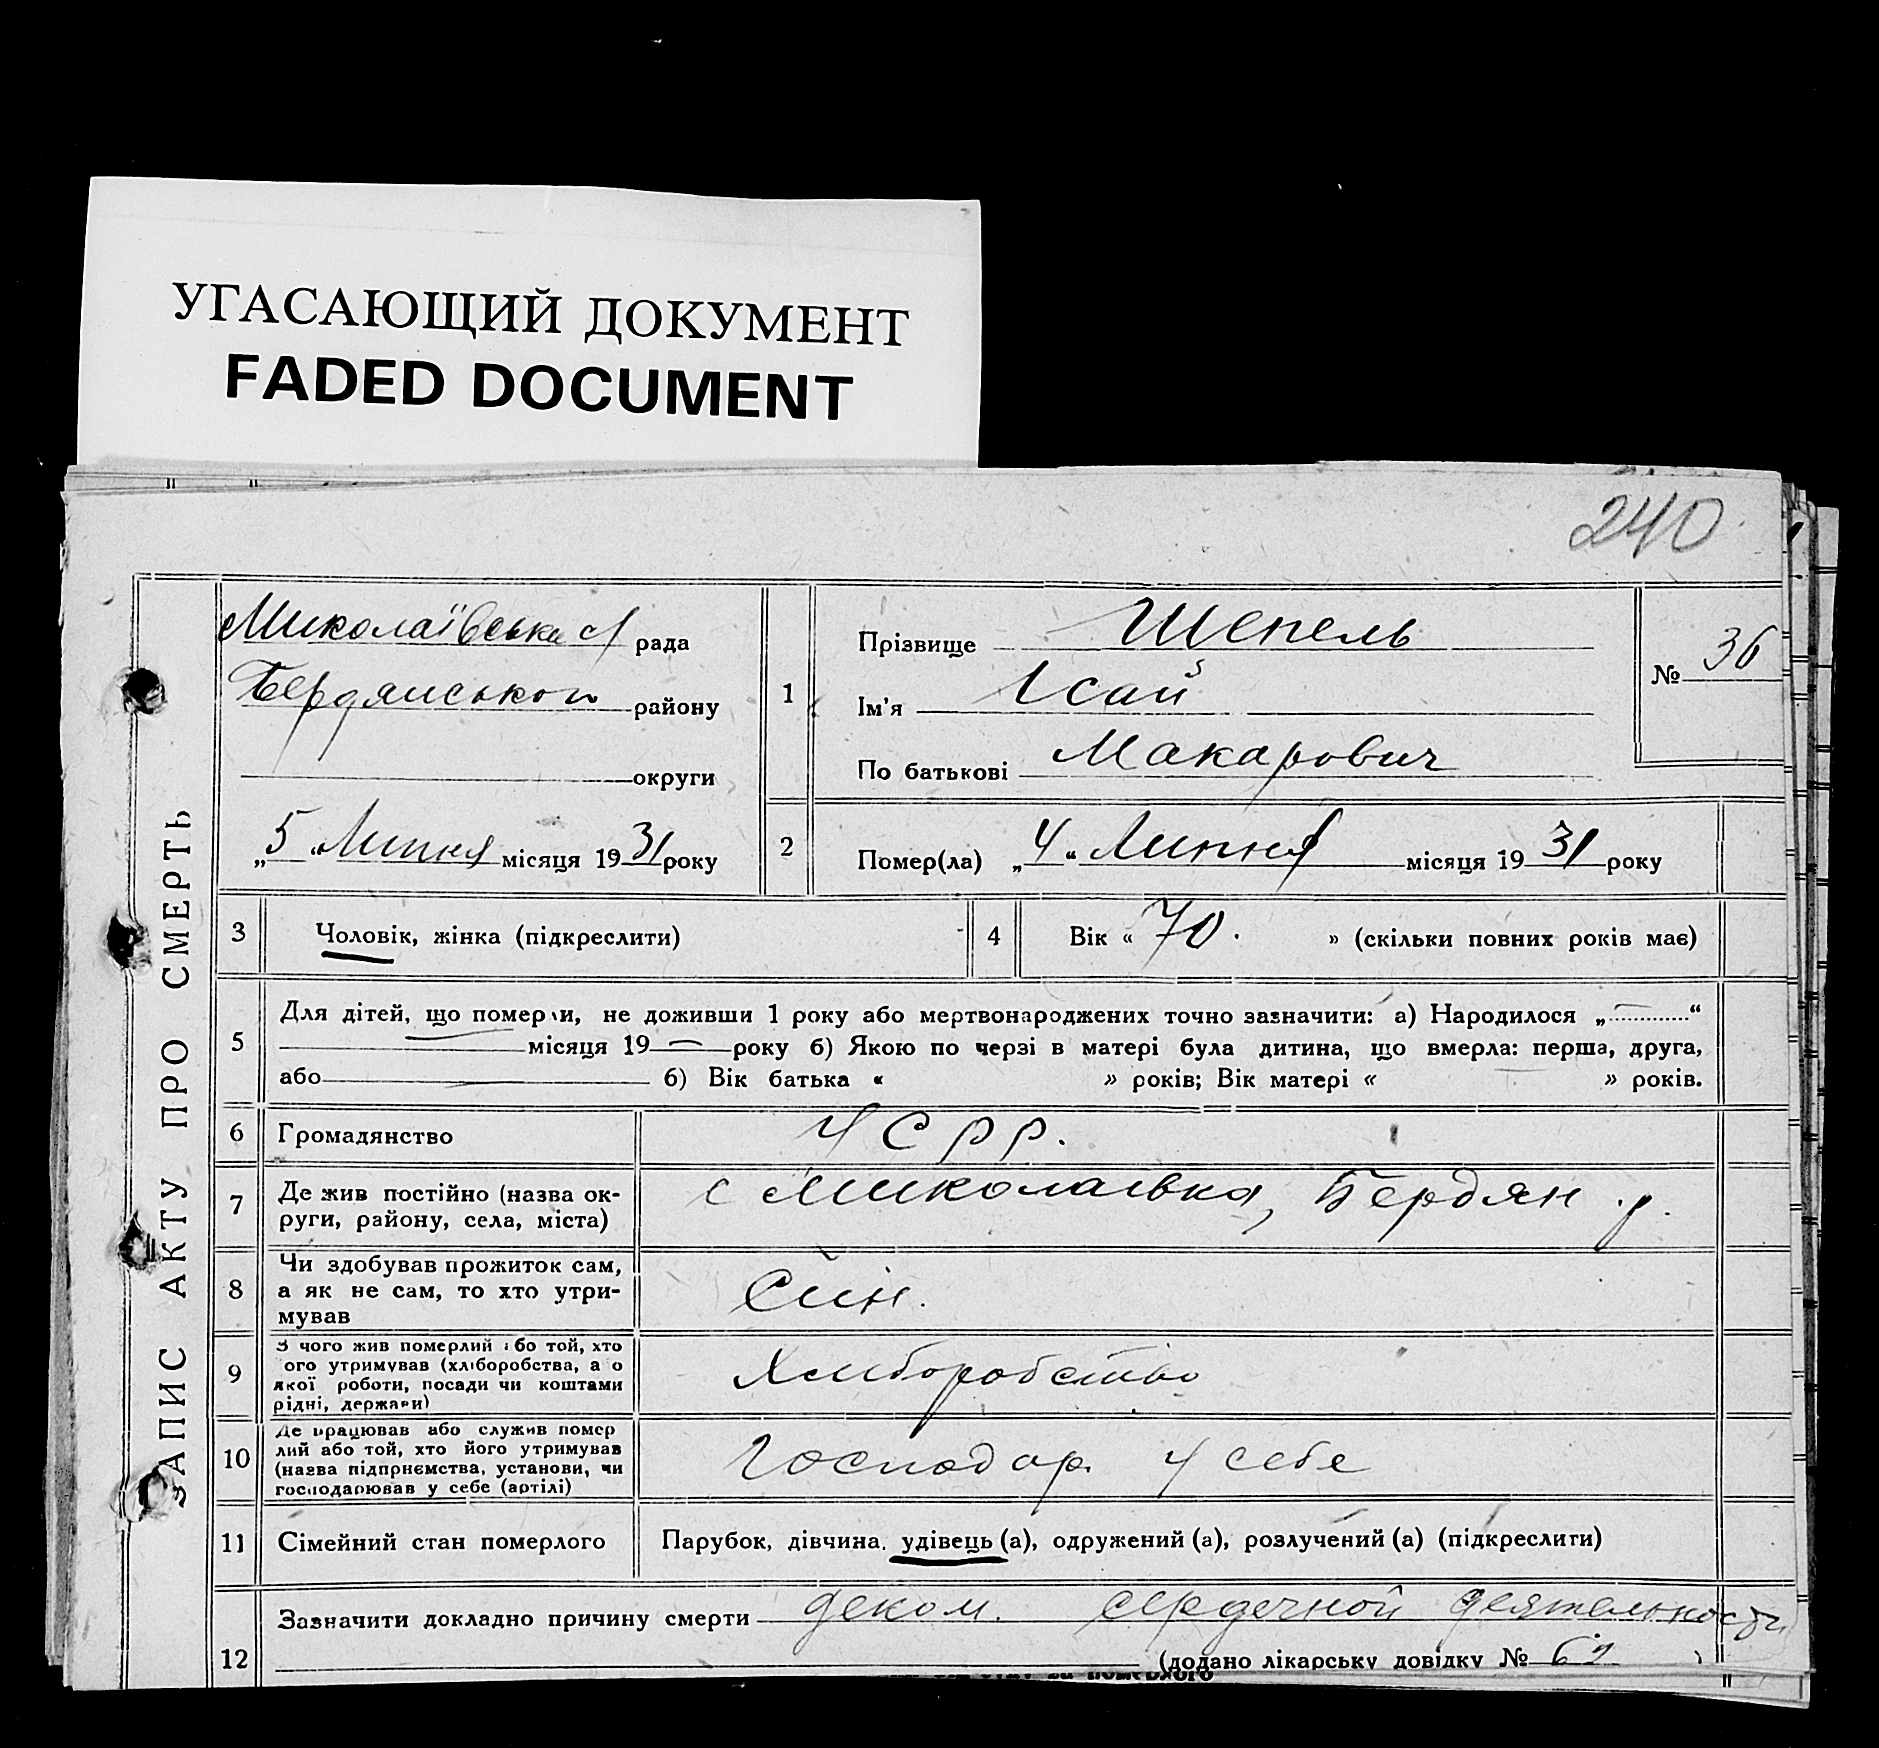 УГАСАЮЩИЙ ДОКУМЕНТ
FADED DOCUMENT
240
ЗАПИС АКТУ ПРО СМЕРТЬ
Миколаївська с/ рада
Бердянського району
округи
„5“ Липня місяця 1931 року
1
Прізвище Шепель
Ім'я Ісай
По батькові Макарович
№ 36
2
Помер(ла) „4“ Липня місяця 1931 року
3 Чоловік, жінка (підкреслити)
4 Вік « 70. » (скільки повних років має)
5
Для дітей, що померли, не доживши 1 року або мертвонароджених точно зазначити: а) Народилося „ “
місяця 19 — року б) Якою по черзі в матері була дитина, що вмерла: перша, друга,
або 6) Вік батька « » років; Вік матері « » років.
6 Громадянство УСРР.
7
Де жив постійно (назва ок-
руги, району, села, міста)
с Миколаївка, Бердян. р.
8
Чи здобував прожиток сам,
а як не сам, то хто утри-
мував
Син.
9
З чого жив померлий або той, хто
ого утримував (хліборобства, а о
якої роботи, посади чи коштами
рідні, держави)
Хліборобство
10
Де працював або служив помер
лий або той, хто його утримував
(назва підприємства, установи, чи
господарював у себе (артілі)
Господар. у себе
11 Сімейний стан померлого
Парубок, дівчина, удівець (а), одружений (а), розлучений (а) (підкреслити)
12
Зазначити докладно причину смерти деком. сердечной деятельности
(додано лікарську довідку № 62 )
померлого